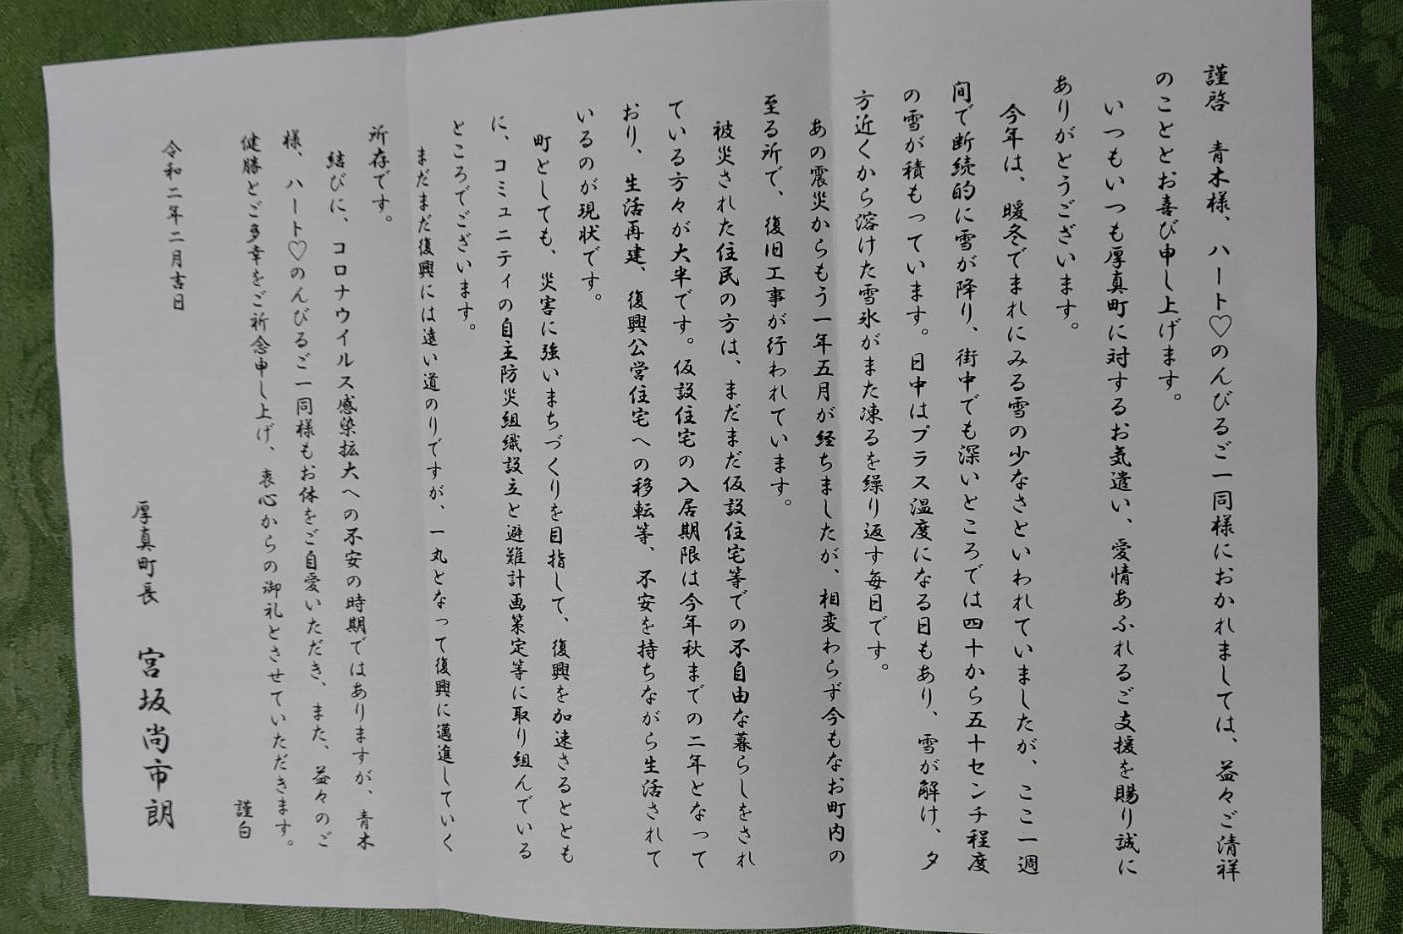 謹啓　青木様、ハート♡のんびるご一同様におかれましては、益々ご清祥
のこととお喜び申し上げます。
いつもいつも厚真町に対するお気遣い、愛情あふれるご支援を賜り誠に
ありがとうございます。
今年は、暖冬でまれにみる雪の少なさといわれていましたが、ここ一週
間で断続的に雪が降り、街中でも深いところでは四十から五十センチ程度
の雪が積もっています。日中はプラス温度になる日もあり、雪が解け、夕
方近くから溶けた雪氷がまた凍るを繰り返す毎日です。
あの震災からもう一年五月が経ちましたが、相変わらず今もなお町内の
至る所で、復旧工事が行われています。
被災された住民の方は、まだまだ仮設住宅等での不自由な暮らしをされ
ている方々が大半です。仮設住宅の入居期限は今年秋までの二年となって
おり、生活再建、復興公営住宅への移転等、不安を持ちながら生活されて
いるのが現状です。
町としても、災害に強いまちづくりを目指して、復興を加速さるととも
に、コミュニティの自主防災組織設立と避難計画策定等に取り組んでいる
ところでございます。
まだまだ復興には遠い道のりですが、一丸となって復興に邁進していく
所存です。
結びに、コロナウイルス感染拡大への不安の時期ではありますが、青木
様、ハート♡のんびるご一同様もお体をご自愛いただき、また、益々のご
健勝とご多幸をご祈念申し上げ、衷心からの御礼とさせていただきます。
謹白
令和二年二月吉日
厚真町長　宮坂尚市朗